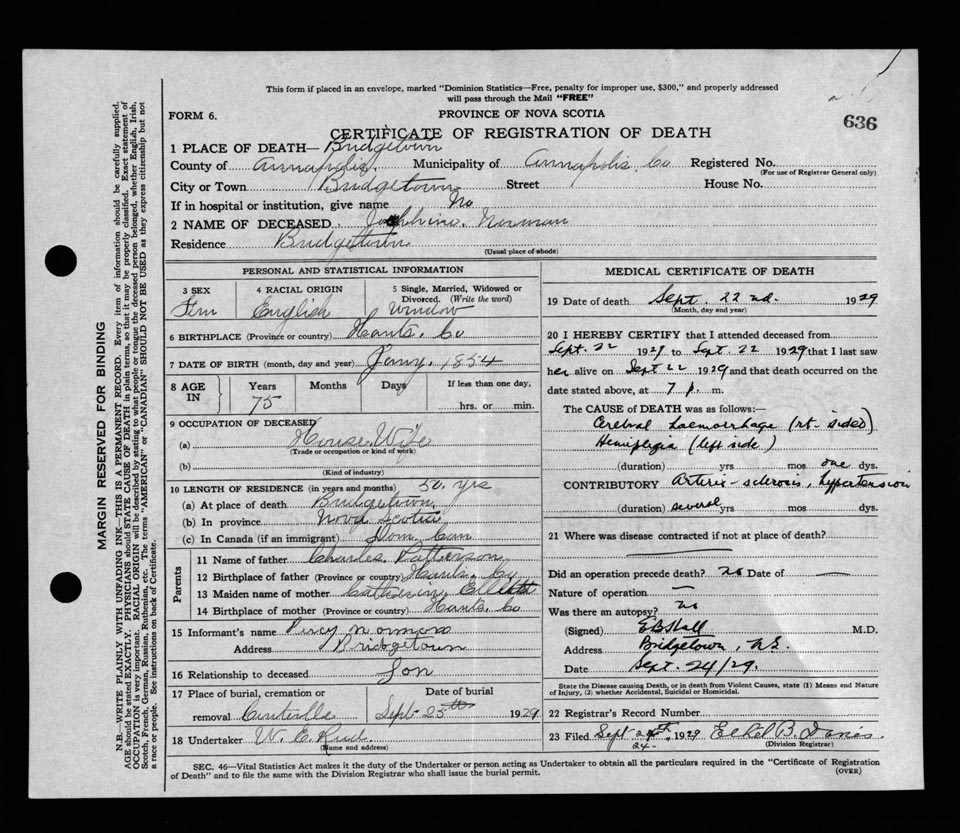 This form if placed in an envelope, marked "Dominion Statistics—Free, penalty for improper use, $300," and properly addressed
will pass through the Mail "FREE"
FORM 6.
PROVINCE OF NOVA SCOTIA
636
CERTIFICATE OF REGISTRATION OF DEATH
1 PLACE OF DEATH— Bridgetown
County of Annapolis Municipality of Annapolis Co Registered No.
(For use of Registrar General only)
City or Town Bridgetown Street House No.
If in hospital or institution, give name No
2 NAME OF DECEASED Josephine Norman
Residence Bridgetown
(Usual place of abode)
PERSONAL AND STATISTICAL INFORMATION
3 SEX
Fem
4 RACIAL ORIGIN
English
5 Single, Married, Widowed or
Divorced. (Write the word)
Window
6 BIRTHPLACE (Province or country) Hants. Co
7 DATE OF BIRTH (month, day and year) Jany. 1854
8 AGE IN
Years Months Days If less than one day,
75 hrs. or min.
9 OCCUPATION OF DECEASED
(a) House Wife
(Trade or occupation or kind of work)
(b)
(Kind of industry)
10 LENGTH OF RESIDENCE (in years and months) 50 yrs
(a) At place of death Bridgetown
(b) In province Nova Scotia
(c) In Canada (if an immigrant) Dom. Can
Parents
11 Name of father Charles Patterson
12 Birthplace of father (Province or country) Hants. Co
13 Maiden name of mother Catherine
14 Birthplace of mother (Province or country) Hants. Co
15 Informant's name Percy Norman
Address Bridgetown
16 Relationship to deceased Son
17 Place of burial, cremation or
removal Centerville
Date of burial
Sept 25th 1929
18 Undertaker W. E.
(Name and address)
MEDICAL CERTIFICATE OF DEATH
19 Date of death Sept. 22nd. 1929
(Month, day and year)
20 I HEREBY CERTIFY that I attended deceased from
Sept. 22 1929 to Sept. 22 1929 that I last saw
her alive on Sept 22 1929 and that death occurred on the
date stated above, at 7 p. m.
The CAUSE OF DEATH was as follows:—
Cerebral haemorrhage (rt-sided)
Hemiplegia (left side)
(duration) yrs mos one dys.
CONTRIBUTORY Arterio-sclerosis, hypertension
(duration) several yrs mos. dys.
21 Where was disease contracted if not at place of death?
Did an operation precede death? no Date of —
Nature of operation —
Was there an autopsy? no
(Signed) E B Hall M.D.
Address Bridgetown, N.S.
Date Sept. 24/29.
State the Disease causing Death, or in death from Violent Causes, state (1) Means and Nature
of Injury, (2) whether Accidental, Suicidal or Homicidal.
22 Registrar's Record Number
23 Filed Sept 24th 1929 Ethel B. Davies
24-
(Division Registrar)
SEC. 46—Vital Statistics Act makes it the duty of the Undertaker or person acting as Undertaker to obtain all the particulars required in the "Certificate of Registration
of Death" and to file the same with the Division Registrar who shall issue the burial permit.
(OVER)
MARGIN RESERVED FOR BINDING
N.B.—WRITE PLAINLY WITH UNFADING INK—THIS IS A PERMANENT RECORD. Every item of information should be carefully supplied.
AGE should be stated EXACTLY. PHYSICIANS should STATE CAUSE OF DEATH in plain terms, so that it may be properly classified. Exact statement of
OCCUPATION is very important. RACIAL ORIGIN will be described by stating to what people or tongue the deceased person belonged, whether English, Irish,
Scotch, French, German, Russian, Ruthenian, etc. The terms "AMERICAN" or "CANADIAN" SHOULD NOT BE USED as they express citizenship but not
a race or people. See instructions on back of Certificate.